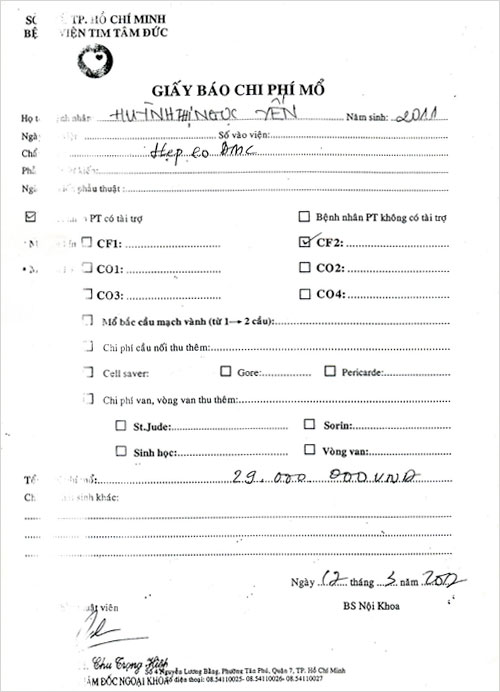 TP. HỒ CHÍ MINH
BỆ VIỆN TIM TÂM ĐỨC
GIẤY BÁO CHI PHÍ MỔ
Họ t nhân HUỲNH THỊ NGỌC YẾN Năm sinh: 2011
Ngày Số vào viện:
Ch Hẹp eo ĐMC
phẫu thuật :
PT có tài trợ Bệnh nhân PT không có tài trợ
CF1: CF2:
CO1: CO2:
CO3: CO4:
Mổ bắc cầu mạch vành (từ 1→ 2 cầu):
Chi phí cầu nối thu thêm:
Cell saver: Gore: Pericarde:
Chi phí van, vòng van thu thêm:
St.Jude: Sorin:
Sinh học: Vòng van:
Tổ 29.000 000 VNĐ
Ch sinh khác:
Ngày 12 tháng 3 năm 2012
viên BS Nội Khoa
Chu Trọng Hiệp
ĐỐC NGOẠI KHOA
Số 4 Nguyễn Lương Bằng, Phường Tân Phú, Quận 7, TP. Hồ Chí Minh
Số điện thoại: 08.54110025- 08.54110026- 08.54110027